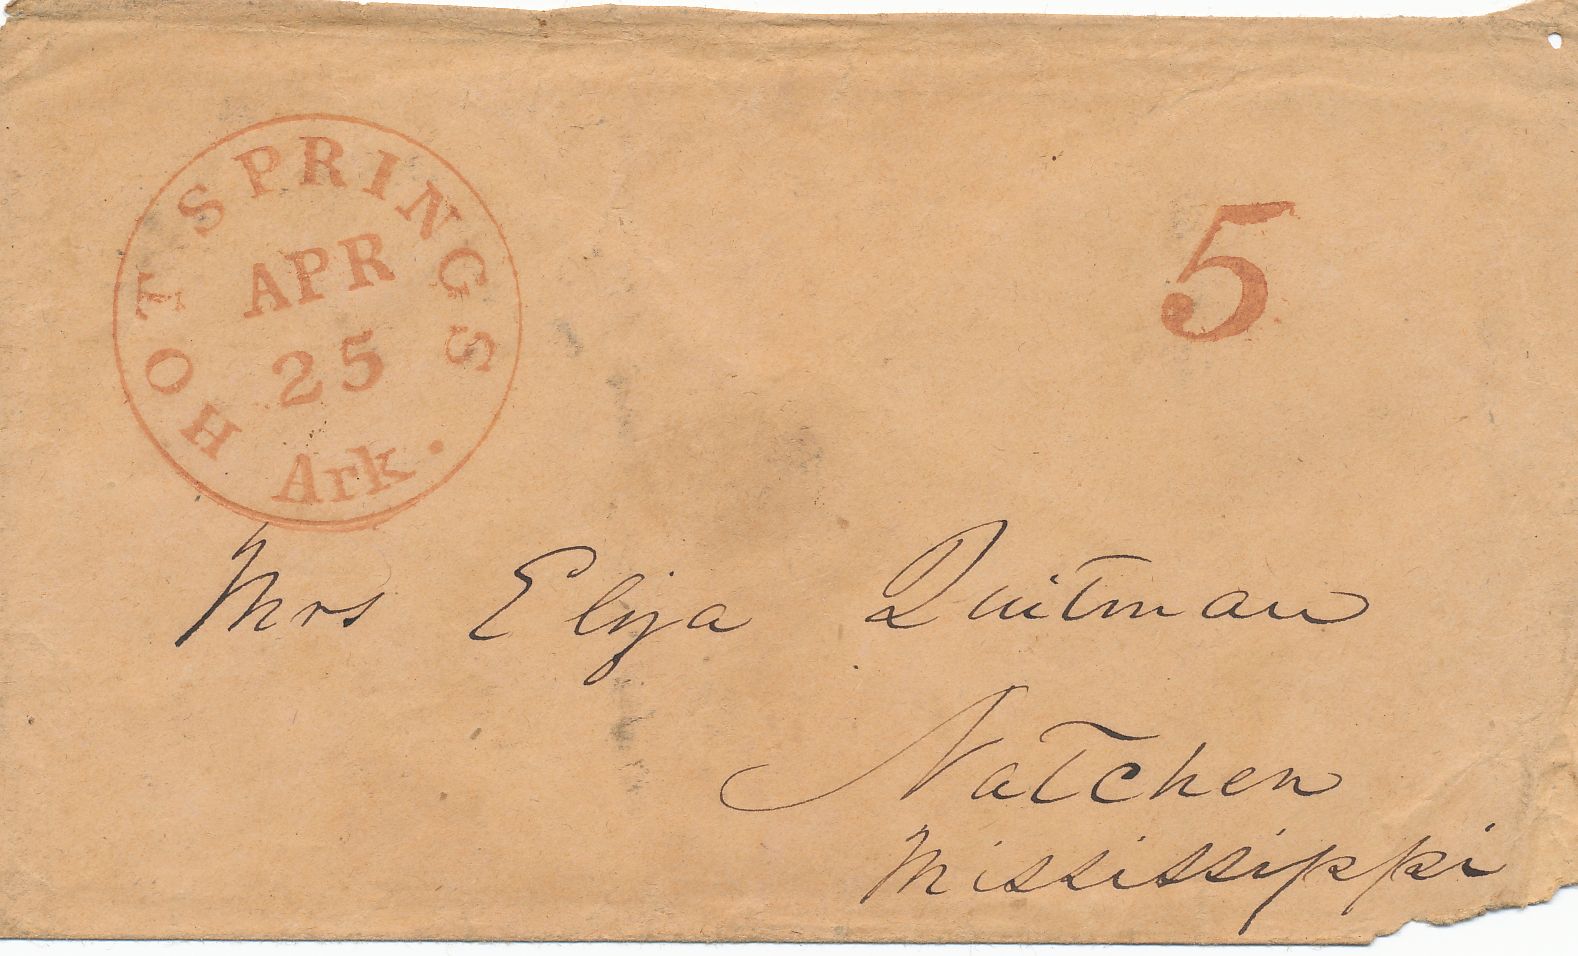 HOT SPRINGS
APR
25
Ark.
5
Mrs Eliza Quitman
Natchez
Mississippi